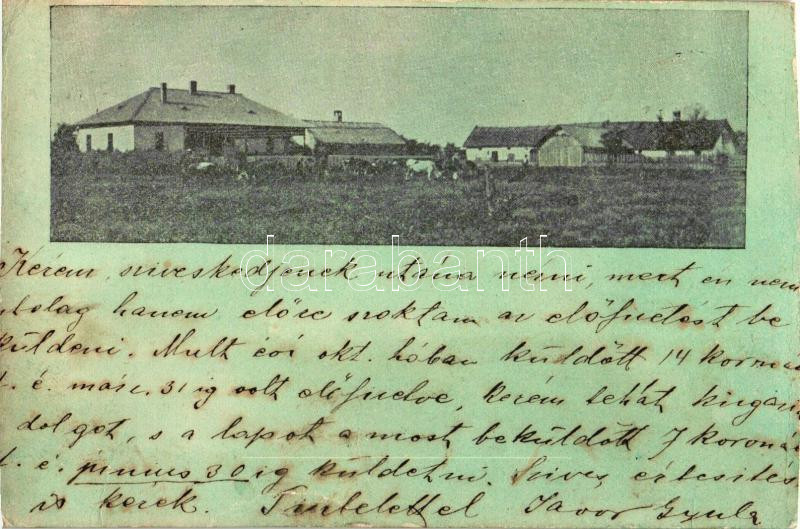 darabanth
Kérem, sziveskedjenek utána nézni, mert én nem
utolag hanem előre szoktam az előfizetést be
küldeni. Mult évi okt. hóban küldött 14 korona
f. é. márc. 31 ig volt előfizetve, kérem tehát kiigazi
dolgot, s a lapot a most beküldött 7 koroná
f. é. junius 30 ig küldetni. Szives értesités
is kérek. Tisztelettel Javor Gyula